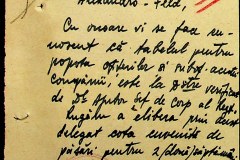 Alexandro - Feld,
Cu onoare vi se face cu
noscut că tabelul pentru
popota ofițerilor și subof. acestei
companii, este la Dstre verificat
de Dl Ajutor Șef de Corp al Reg.
Rugăm a elibera prin acest
delegat cota cuvenită de
pentru 2 (două) săptămâni